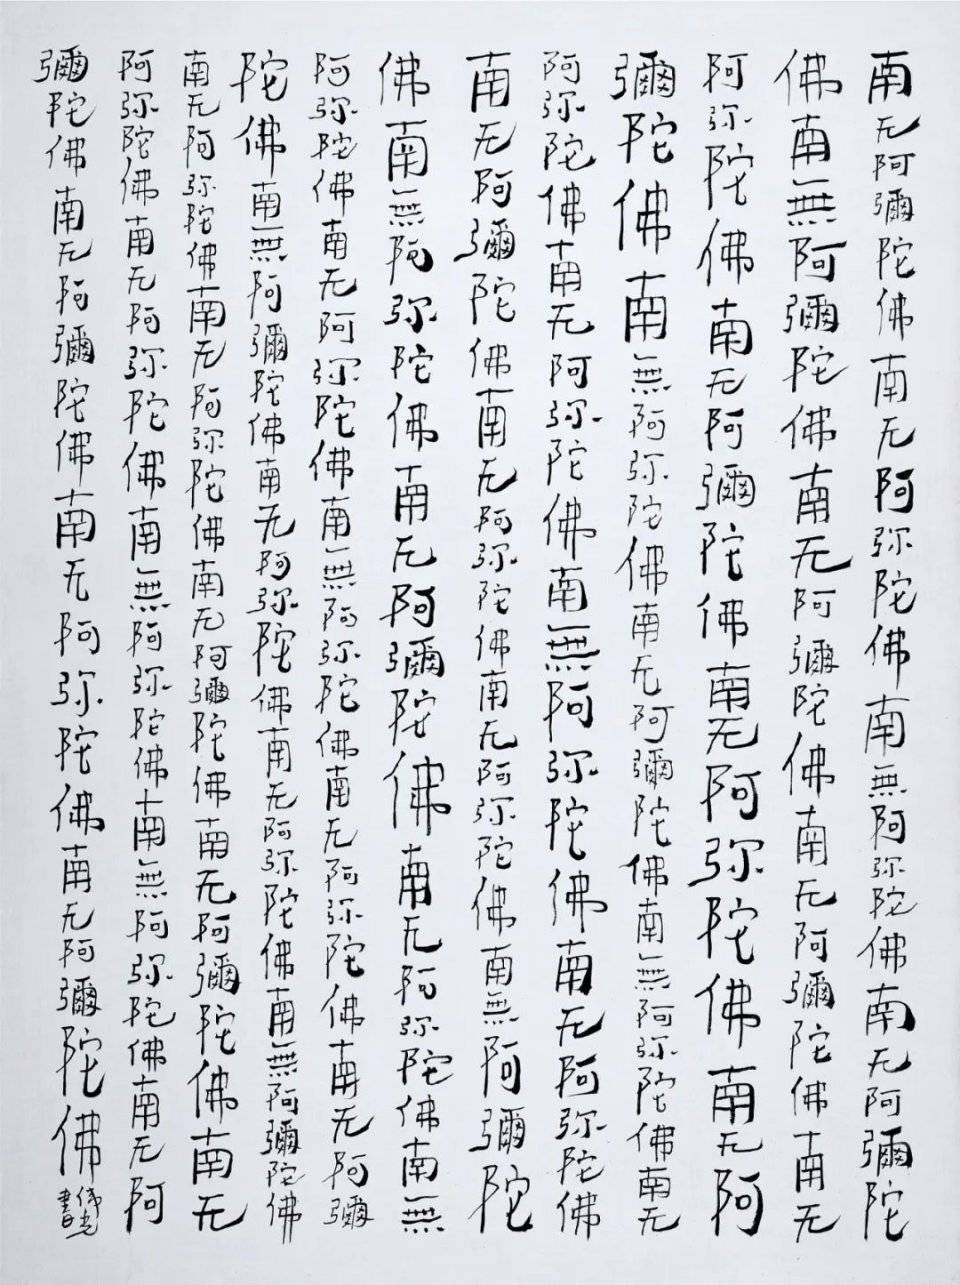 南无阿彌陀佛南无阿弥陀佛南無阿弥陀佛南无阿彌陀
佛南無阿彌陀佛南无阿彌陀佛南无阿彌陀佛南无
阿弥陀佛南无阿彌陀佛南无阿弥陀佛南无阿
彌陀佛南無阿弥陀佛南无阿彌陀佛南無阿弥陀佛南无
阿弥陀佛南无阿弥陀佛南無阿弥陀佛南无阿弥陀佛
南无阿彌陀佛南无阿弥陀佛南无阿弥陀佛南無阿彌陀
佛南無阿弥陀佛南无阿彌陀佛南无阿弥陀佛南無
阿弥陀佛南无阿弥陀佛南無阿弥陀佛南无阿弥陀佛南无阿彌
陀佛南無阿彌陀佛南无阿弥陀佛南无阿弥陀佛南無阿彌陀佛
南无阿弥陀佛南无阿弥陀佛南无阿彌陀佛南无阿彌陀佛南无
阿弥陀佛南无阿弥陀佛南無阿弥陀佛南無阿弥陀佛南无阿
彌陀佛南无阿彌陀佛南无阿弥陀佛南无阿彌陀佛
書